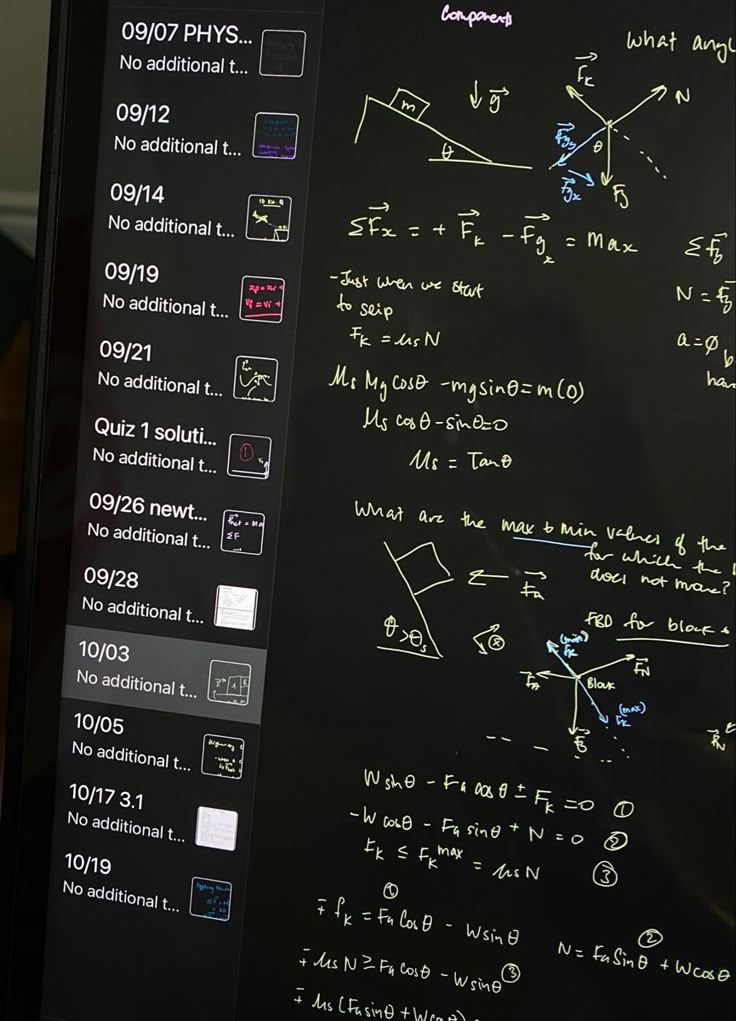 09/07 PHYS...
No additional t...
09/12
No additional t...
09/14
No additional t...
09/19
No additional t...
09/21
No additional t...
Quiz 1 soluti...
No additional t...
09/26 newt...
No additional t...
09/28
No additional t...
10/03
No additional t...
10/05
No additional t...
10/17 3.1
No additional t...
10/19
No additional t...
Components
what angl
m
↓ g⃗
θ
F⃗k
N
F⃗gy
θ
F⃗gx
F⃗g
ΣF⃗x = + F⃗k - F⃗gx = max
- Just when we start
to slip
Fk = μsN
N =
a = ∅
μs Mg cosθ - mg sinθ = m(0)
μs cosθ - sinθ = 0
μs = Tanθ
What are the max & min values of the
for which the
does not move?
← F⃗a
θ > θs
FBD for block
(min)
F⃗k
F⃗A
F⃗N
Block
(max)
F⃗k
F⃗g
F⃗N
W sinθ - Fa cosθ ± Fk = 0 ①
-W cosθ - Fa sinθ + N = 0 ②
Fk ≤ Fk max = μsN ③
①
∓ fk = Fa cosθ - W sinθ
②
N = Fa sinθ + W cosθ
∓ μs N ≥ Fa cosθ - W sinθ ③
∓ μs (Fa sinθ + W cosθ)